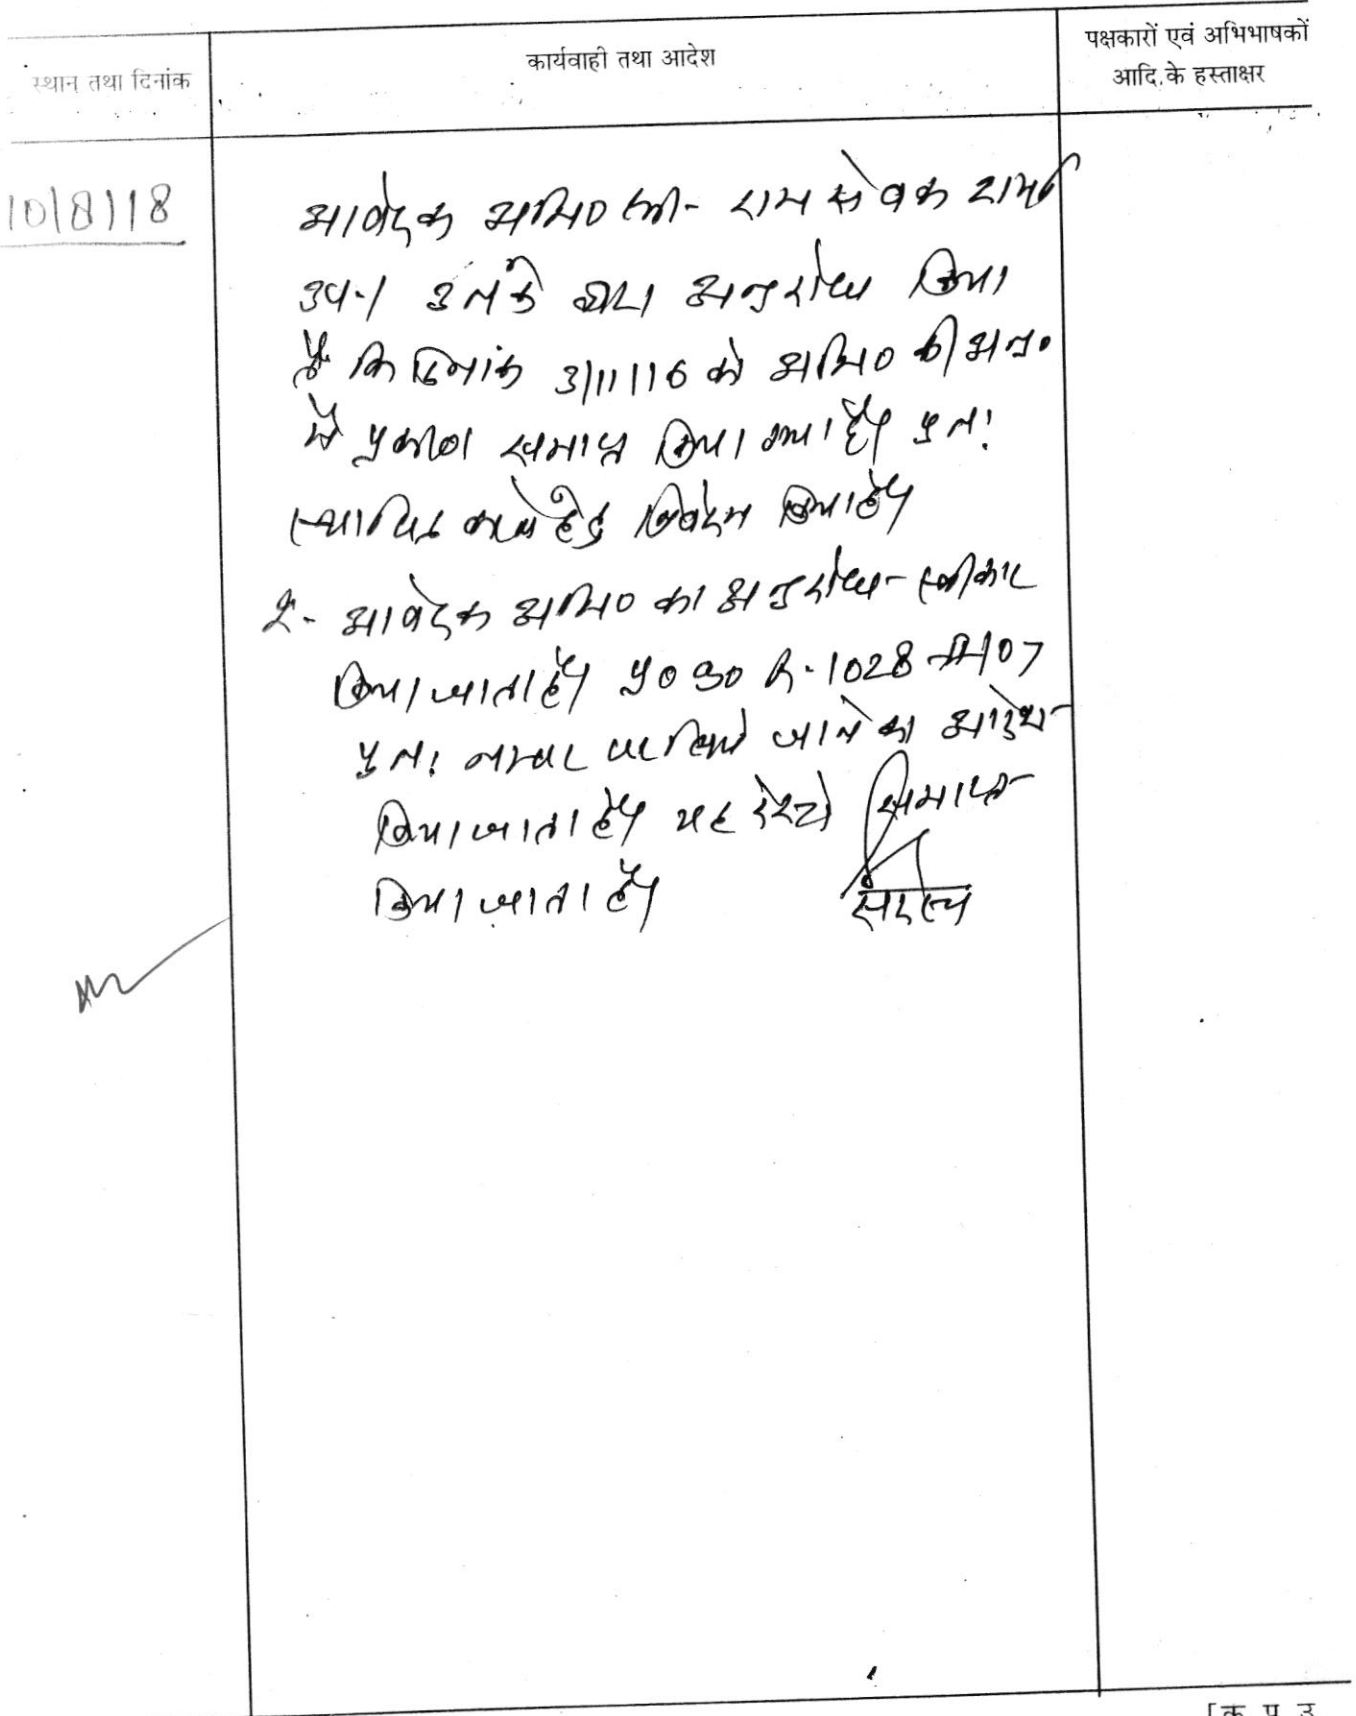 स्थान तथा दिनांक
कार्यवाही तथा आदेश
पक्षकारों एवं अभिभाषकों
आदि के हस्ताक्षर
10/8/18
आवेदक अभि० श्री- राम सेवक शर्मा
उप.। उनके द्वारा अनुरोध किया
है कि दिनांक 3/11/16 को अभि० की अनु०
में प्रकरण समाप्त किया गया है। पुन:
स्थापित करने हेतु निवेदन किया है।
2- आवेदक अभि० का अनुरोध स्वीकार
किया जाता है। प्र० क्र० R-1028-II/07
पुन: नम्बर पर लिये जाने का आदेश
किया जाता है। यह रेस्टो समाप्त
किया जाता है।
सदस्य